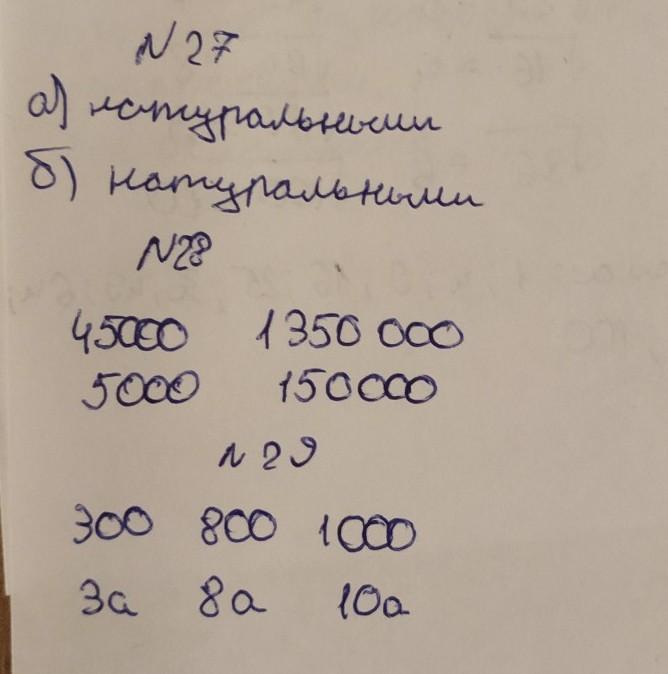 N 27
а) натуральными
б) натуральными
N28
45000 1350 000
5000 150000
N 29
300 800 1000
3а 8а 10а